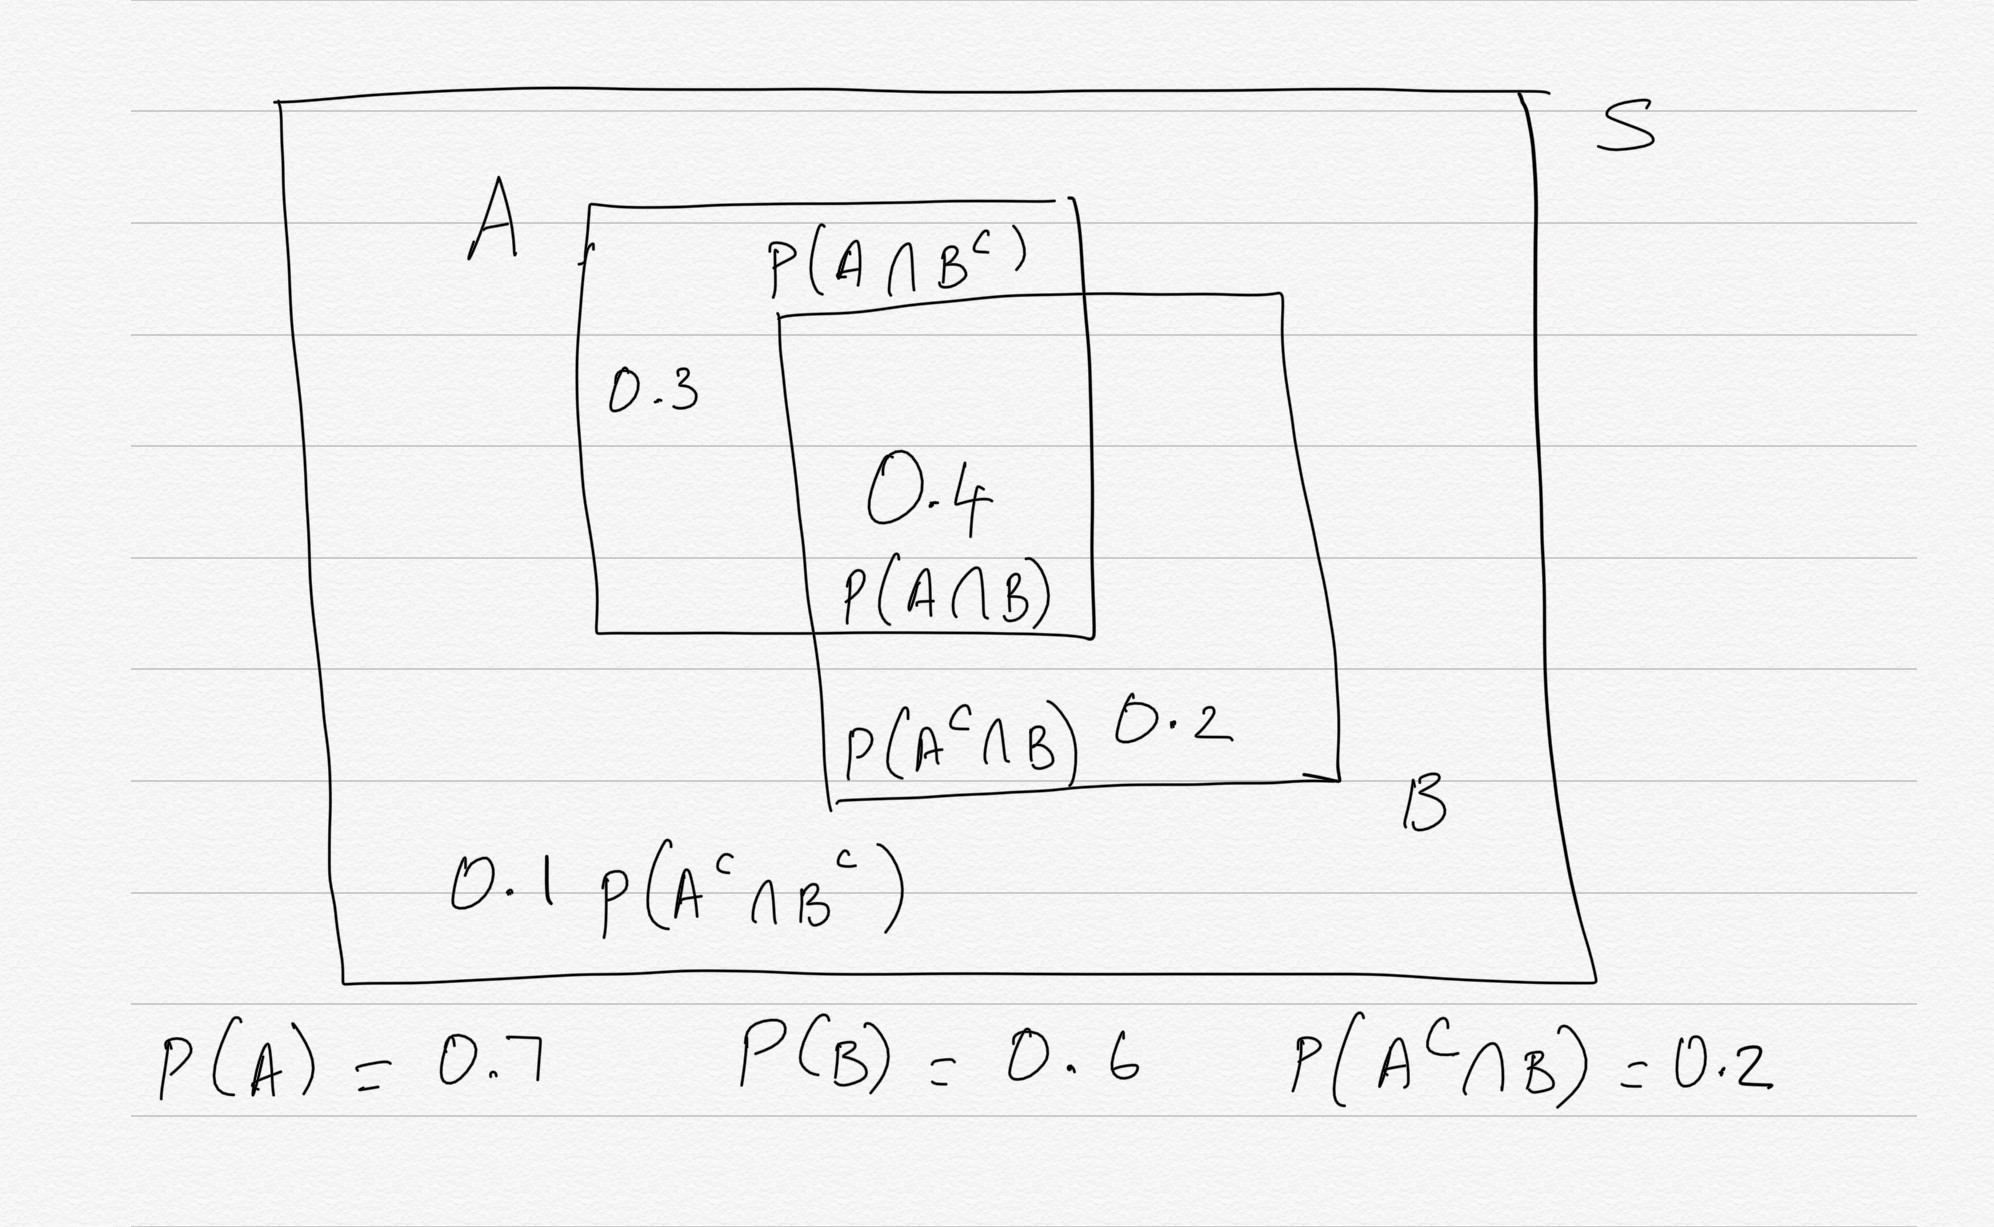 S
A
P(A ∩ Bᶜ)
0.3
0.4
P(A ∩ B)
P(Aᶜ ∩ B) 0.2
B
0.1 P(Aᶜ ∩ Bᶜ)
P(A) = 0.7 P(B) = 0.6 P(Aᶜ ∩ B) = 0.2